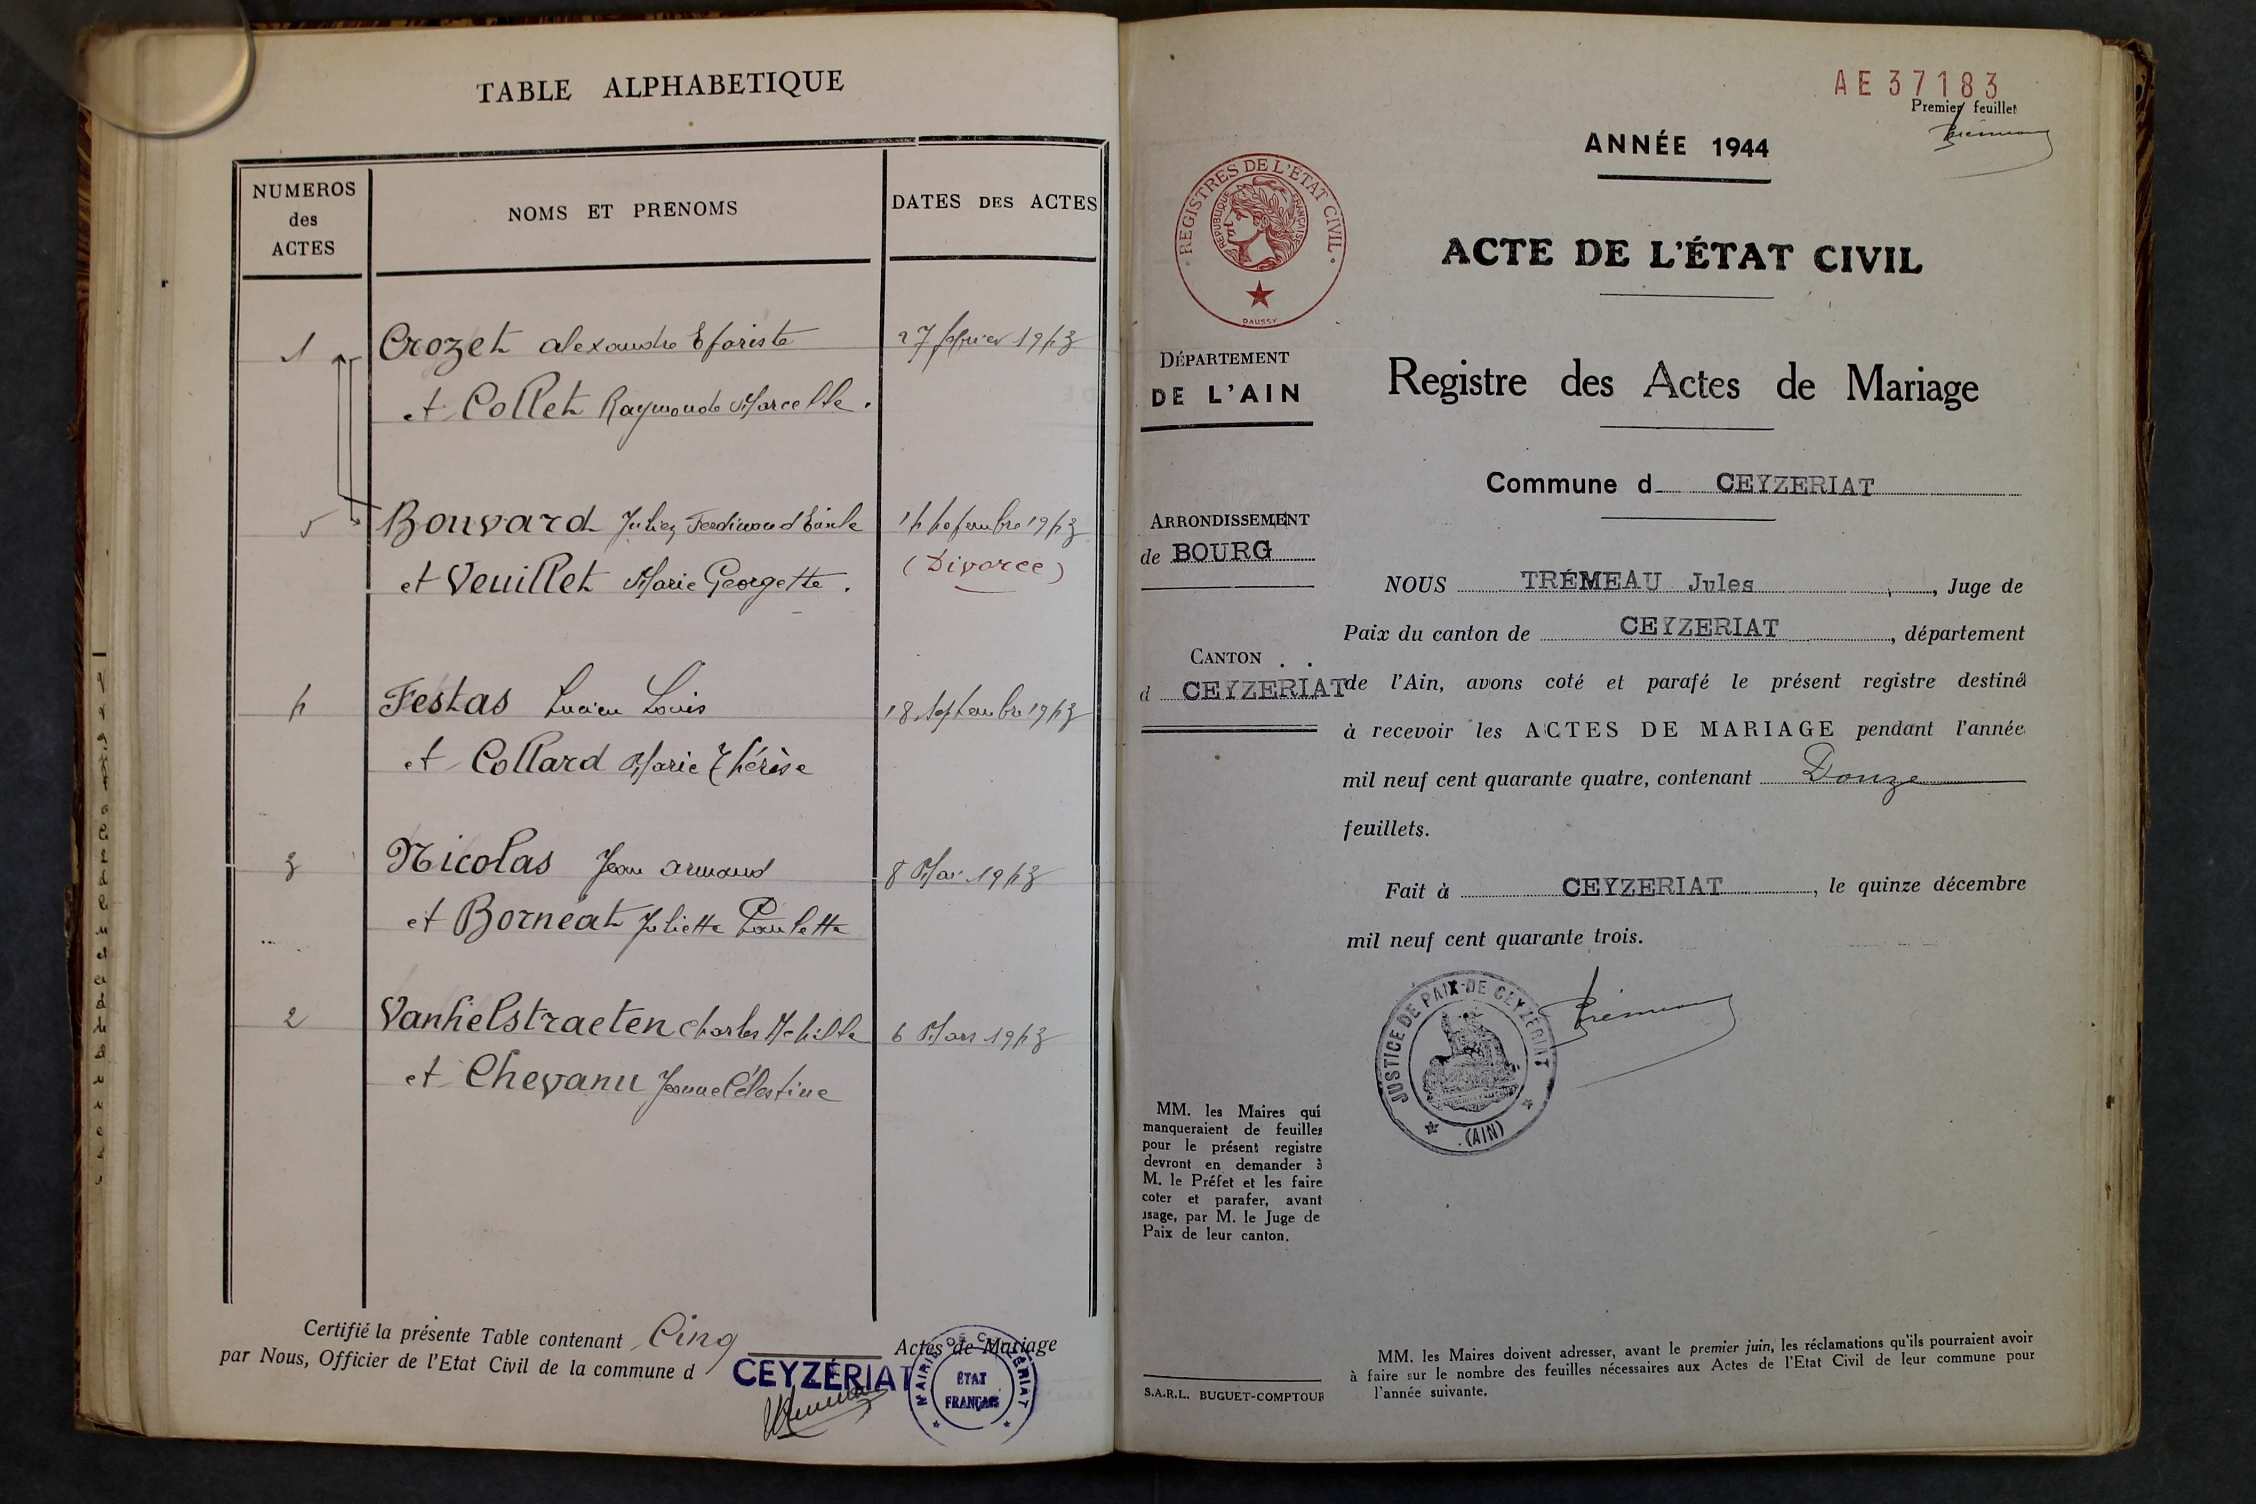 TABLE ALPHABETIQUE
NUMEROS
des
ACTES
NOMS ET PRENOMS
DATES DES ACTES
1 Crozet Alexandre Efariste 27 février 1943
et Collet Raymonde Marcelle.
5 Bouvard Julien Ferdinand Emile 14 novembre 1943
et Veuillet Marie Georgette. (Divorce)
4 Festas Lucien Louis 18 septembre 1943
et Collard Marie Thérèse
3 Nicolas Jean Armand 8 Mai 1943
et Borneat Juliette Paulette
2 Vanhelstraeten Charles 6 Mars 1943
et Chevanu Jeanne Célestine
Certifié la présente Table contenant Cinq Actes de Mariage
par Nous, Officier de l'Etat Civil de la commune d CEYZÉRIAT
MAIRIE DE CEYZÉRIAT
ÉTAT
FRANÇAIS
AE37183
Premier feuillet
ANNÉE 1944
REGISTRES DE L'ÉTAT CIVIL
RÉPUBLIQUE FRANÇAISE
DAUSSY
ACTE DE L'ÉTAT CIVIL
DÉPARTEMENT
DE L'AIN
Registre des Actes de Mariage
Commune d CEYZERIAT
ARRONDISSEMENT
de BOURG
CANTON
d CEYZERIAT
NOUS TRÉMEAU Jules, Juge de
Paix du canton de CEYZERIAT, département
de l'Ain, avons coté et parafé le présent registre destiné
à recevoir les ACTES DE MARIAGE pendant l'année
mil neuf cent quarante quatre, contenant Douze
feuillets.
Fait à CEYZERIAT, le quinze décembre
mil neuf cent quarante trois.
JUSTICE DE PAIX DE CEYZÉRIAT
(AIN)
MM. les Maires qui
manqueraient de feuilles
pour le présent registre
devront en demander à
M. le Préfet et les faire
coter et parafer, avant
usage, par M. le Juge de
Paix de leur canton.
S.A.R.L. BUGUET-COMPTOUR
MM. les Maires doivent adresser, avant le premier juin, les réclamations qu'ils pourraient avoir
à faire sur le nombre des feuilles nécessaires aux Actes de l'Etat Civil de leur commune pour
l'année suivante.